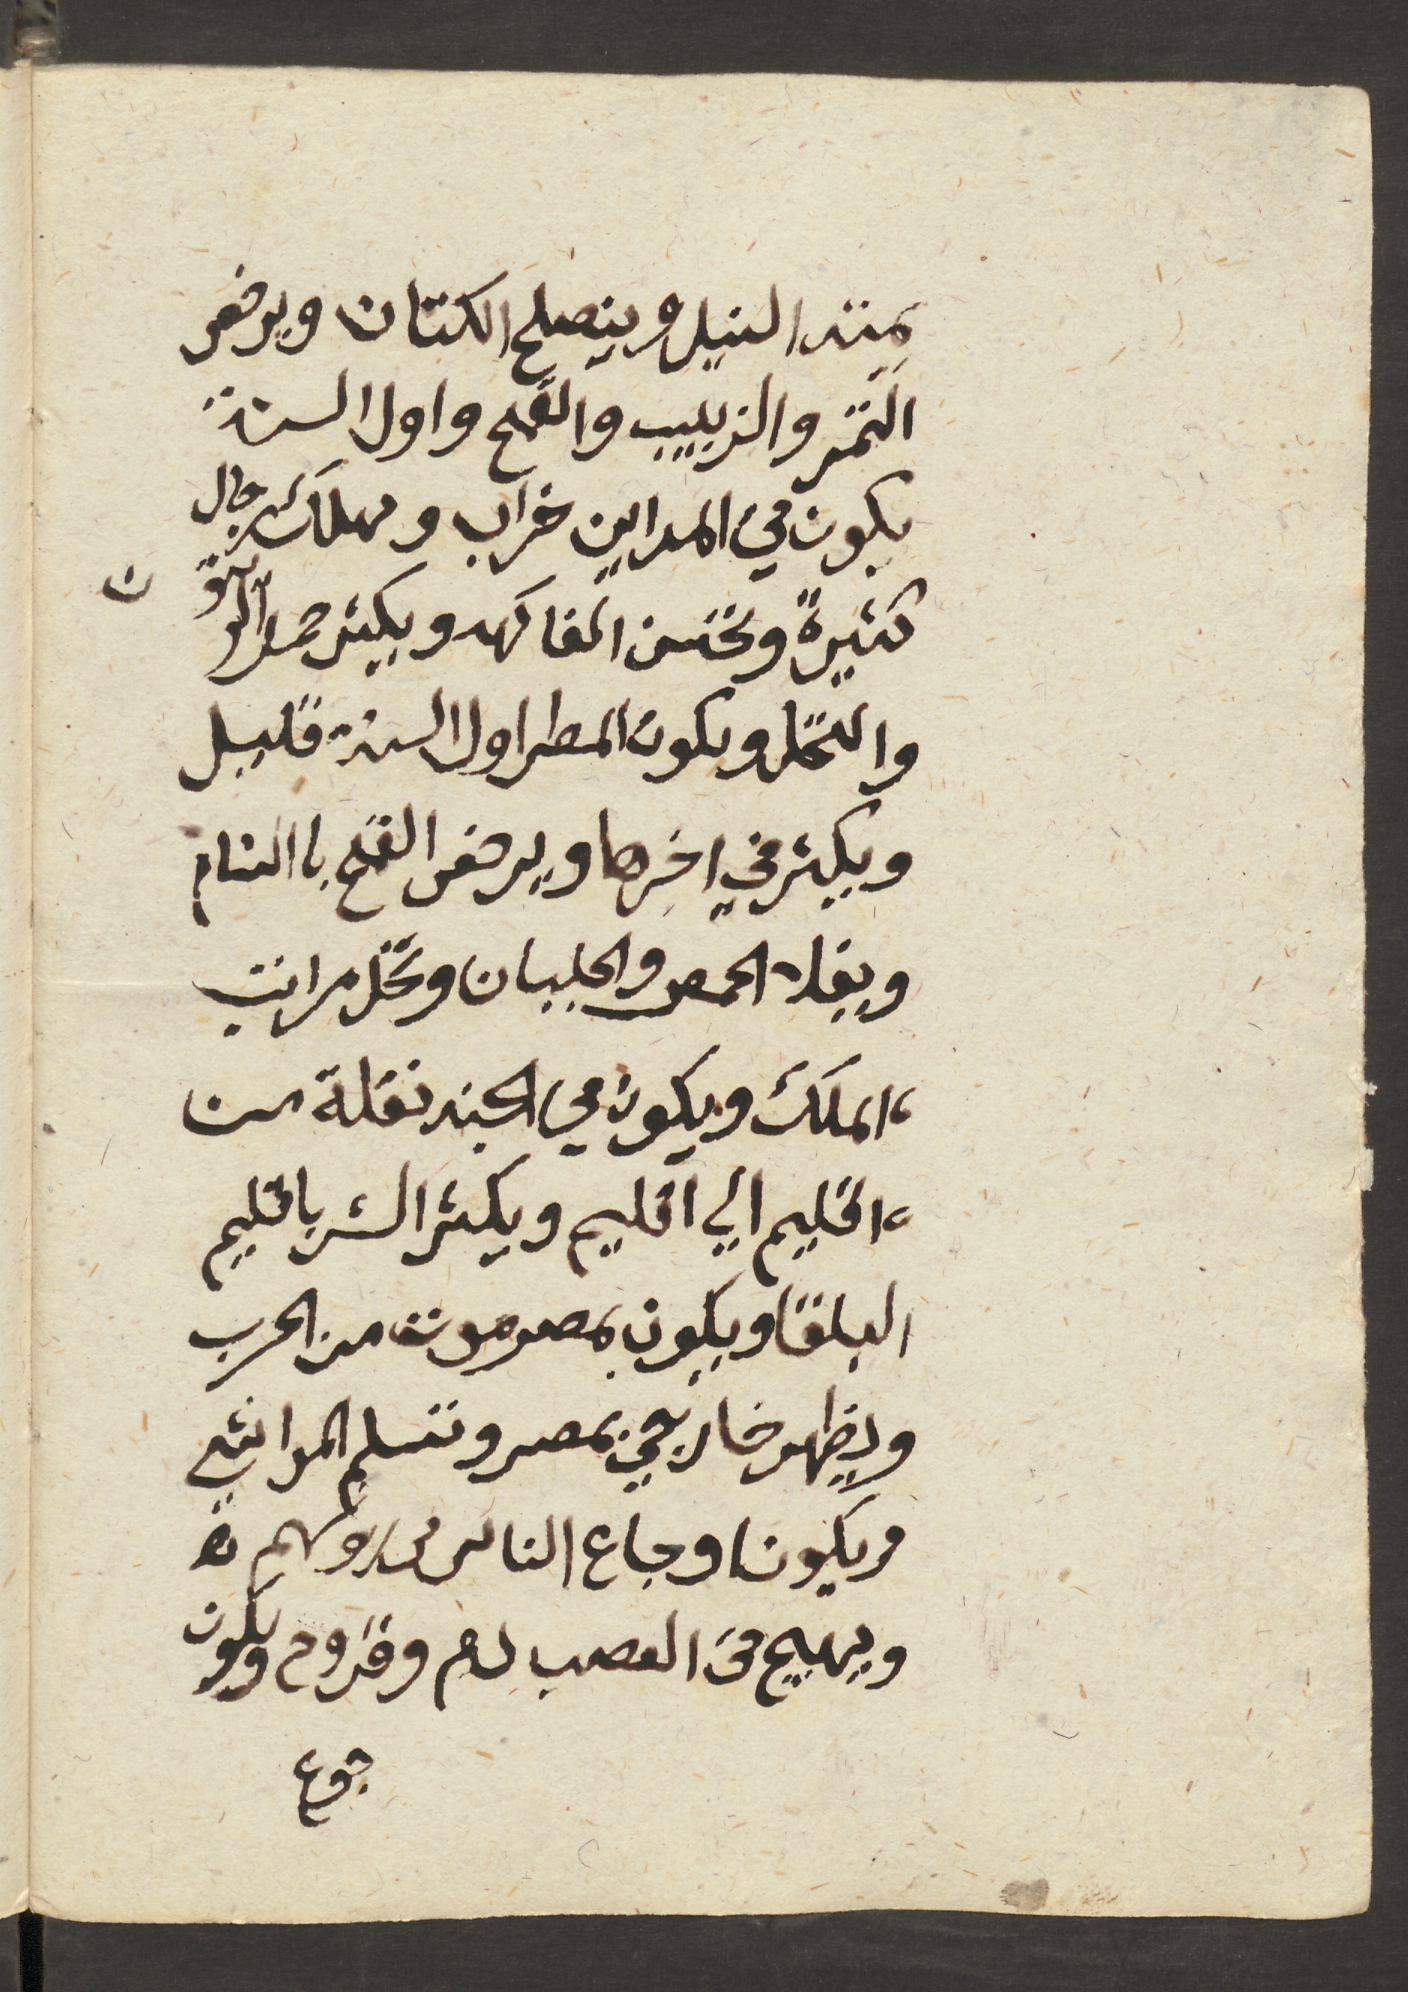 يمتد النيل وينصلح الكتان ويرخص
التمر والزبيب والقمح واول السنة
يكون في المداين خراب ومهلك رجال
كثيرة وتحسن الفاكهه ويكثر حمل الزيتون
والنخل ويكون المطر اول السنة قليل
ويكثر في اخرها ويرخص القمح باالشام
ويغلا الحمص والجلبان وتختل مراتب
الملك ويكون في الجند نقلة من
اقليم الي اقليم ويكثر الشر باقليم
البلقا ويكون بمصر موت من الحرب
ويظهر خارجي بمصر وتسلم المواشي
ويكون اوجاع الناس في
ويهيج في العصب دم وقروح ويكون
جوع